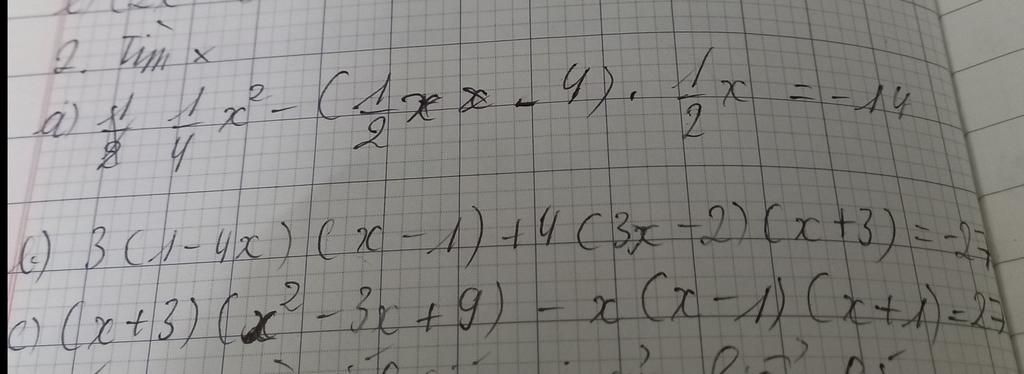 2. Tìm x
a) 1/4 x² - (1/2 x - 4) . 1/2 x = -14
b) 3(1-4x)(x-1)+4(3x-2)(x+3)=-27
c) (x+3)(x²-3x+9)-x(x-1)(x+1)=27